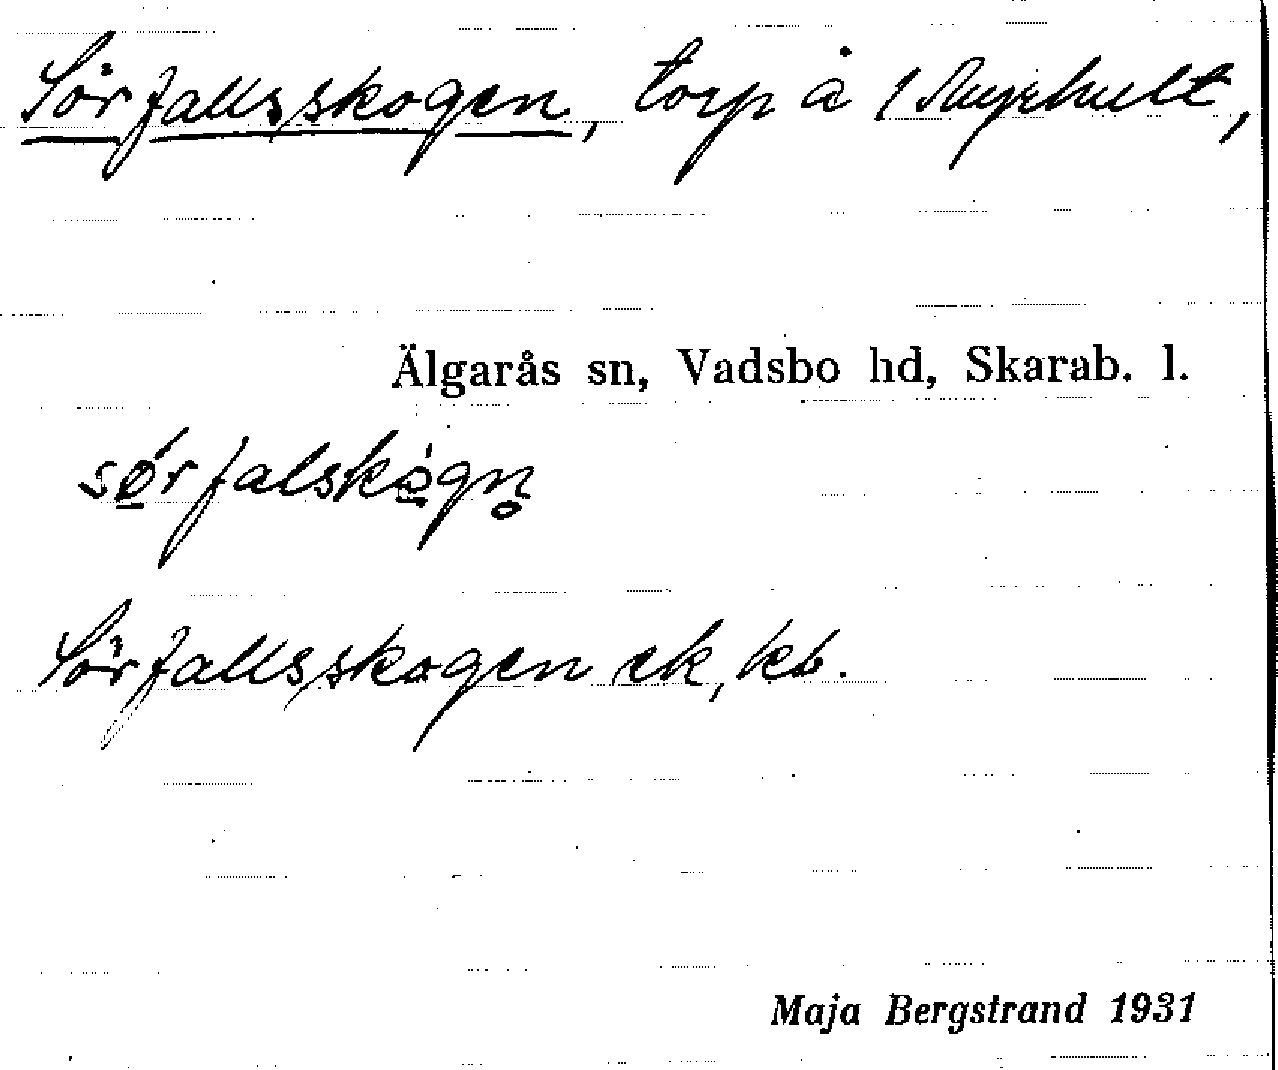 Sörfallsskogen, torp å 1 Myrhult,
Älgarås sn, Vadsbo hd, Skarab. l.
sǿ̱rfalskò̱gn̥
Sörfallsskogen ek, kb.
Maja Bergstrand 1931